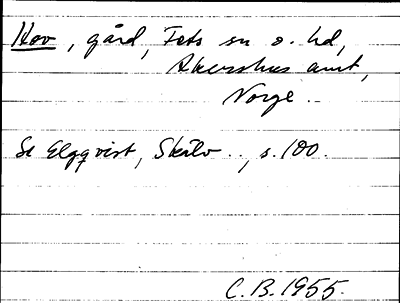 Hov, gård, Fets sn o. hd,
Akershus amt,
Norge.
Se Elgqvist, Skälv.., s. 100.
C.B. 1955.